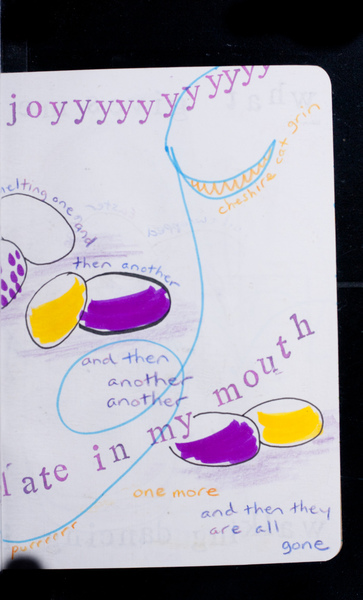 joyyyyyyyyyyy
cheshire cat grin
melting one and
then another
and then
another
another
I ate in my mouth
one more
and then they
are all
gone
purrrrrr